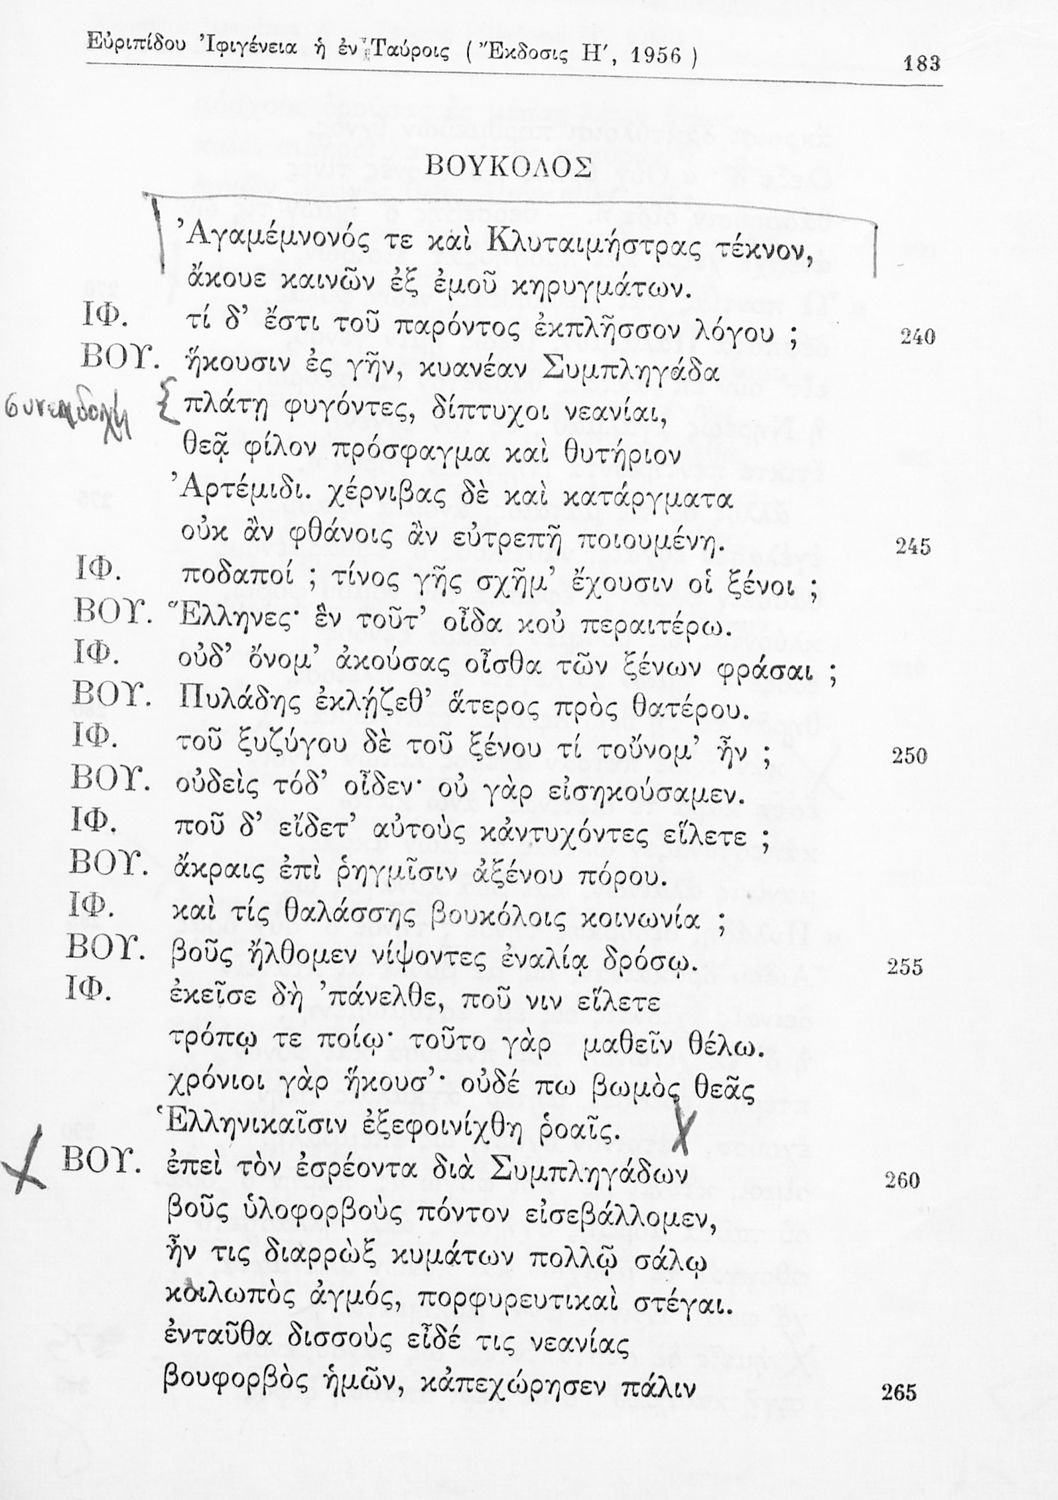 Εὐριπίδου Ἰφιγένεια ἡ ἐν Ταύροις ( Ἔκδοσις Η΄, 1956 ) 183
ΒΟΥΚΟΛΟΣ
Ἀγαμέμνονός τε καὶ Κλυταιμήστρας τέκνον,
ἄκουε καινῶν ἐξ ἐμοῦ κηρυγμάτων.
ΙΦ. τί δ’ ἔστι τοῦ παρόντος ἐκπλῆσσον λόγου ; 240
ΒΟΥ. ἥκουσιν ἐς γῆν, κυανέαν Συμπληγάδα
συνεκδοχή { πλάτῃ φυγόντες, δίπτυχοι νεανίαι,
θεᾷ φίλον πρόσφαγμα καὶ θυτήριον
Ἀρτέμιδι. χέρνιβας δὲ καὶ κατάργματα
οὐκ ἂν φθάνοις ἂν εὐτρεπῆ ποιουμένη. 245
ΙΦ. ποδαποί ; τίνος γῆς σχῆμ’ ἔχουσιν οἱ ξένοι ;
ΒΟΥ. Ἕλληνες· ἓν τοῦτ’ οἶδα κοὐ περαιτέρω.
ΙΦ. οὐδ’ ὄνομ’ ἀκούσας οἶσθα τῶν ξένων φράσαι ;
ΒΟΥ. Πυλάδης ἐκλῄζεθ’ ἅτερος πρὸς θατέρου.
ΙΦ. τοῦ ξυζύγου δὲ τοῦ ξένου τί τοὔνομ’ ἦν ; 250
ΒΟΥ. οὐδεὶς τόδ’ οἶδεν· οὐ γὰρ εἰσηκούσαμεν.
ΙΦ. ποῦ δ’ εἴδετ’ αὐτοὺς κἀντυχόντες εἵλετε ;
ΒΟΥ. ἄκραις ἐπὶ ῥηγμῖσιν ἀξένου πόρου.
ΙΦ. καὶ τίς θαλάσσης βουκόλοις κοινωνία ;
ΒΟΥ. βοῦς ἤλθομεν νίψοντες ἐναλίᾳ δρόσῳ. 255
ΙΦ. ἐκεῖσε δὴ ’πάνελθε, ποῦ νιν εἵλετε
τρόπῳ τε ποίῳ· τοῦτο γὰρ μαθεῖν θέλω.
χρόνιοι γὰρ ἥκουσ’· οὐδέ πω βωμὸς θεᾶς
Ἑλληνικαῖσιν ἐξεφοινίχθη ῥοαῖς.
ΒΟΥ. ἐπεὶ τὸν ἐσρέοντα διὰ Συμπληγάδων 260
βοῦς ὑλοφορβοὺς πόντον εἰσεβάλλομεν,
ἦν τις διαρρὼξ κυμάτων πολλῷ σάλῳ
κοιλωπὸς ἀγμός, πορφυρευτικαὶ στέγαι.
ἐνταῦθα δισσοὺς εἶδέ τις νεανίας
βουφορβὸς ἡμῶν, κἀπεχώρησεν πάλιν 265